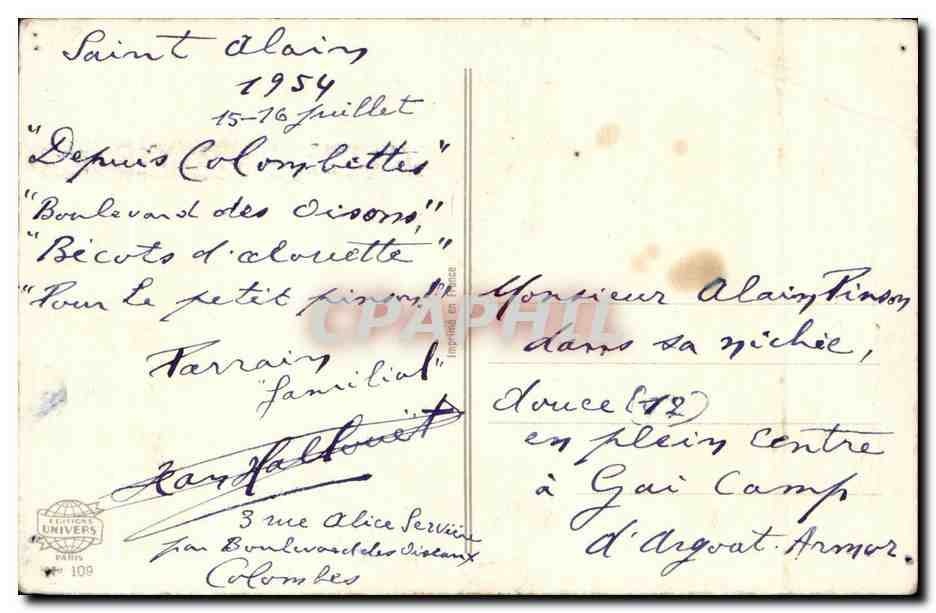 Saint Alain
1954
15-16 juillet
"Depuis Colombettes"
"Boulevard des Oisons"
"Bécots d'alouette"
"Pour le petit pinson!"
Parrain
"familial"
Jean Hallouët
3 rue Alice Servière
par Boulevard des Oiseaux
Colombes
EDITIONS
UNIVERS
PARIS
109
Imprimé en France
CPAPHIL
Monsieur Alain Pinson
dans sa nichée,
douce (12)
en plein centre
à Gai Camp
d'Argoat-Armor